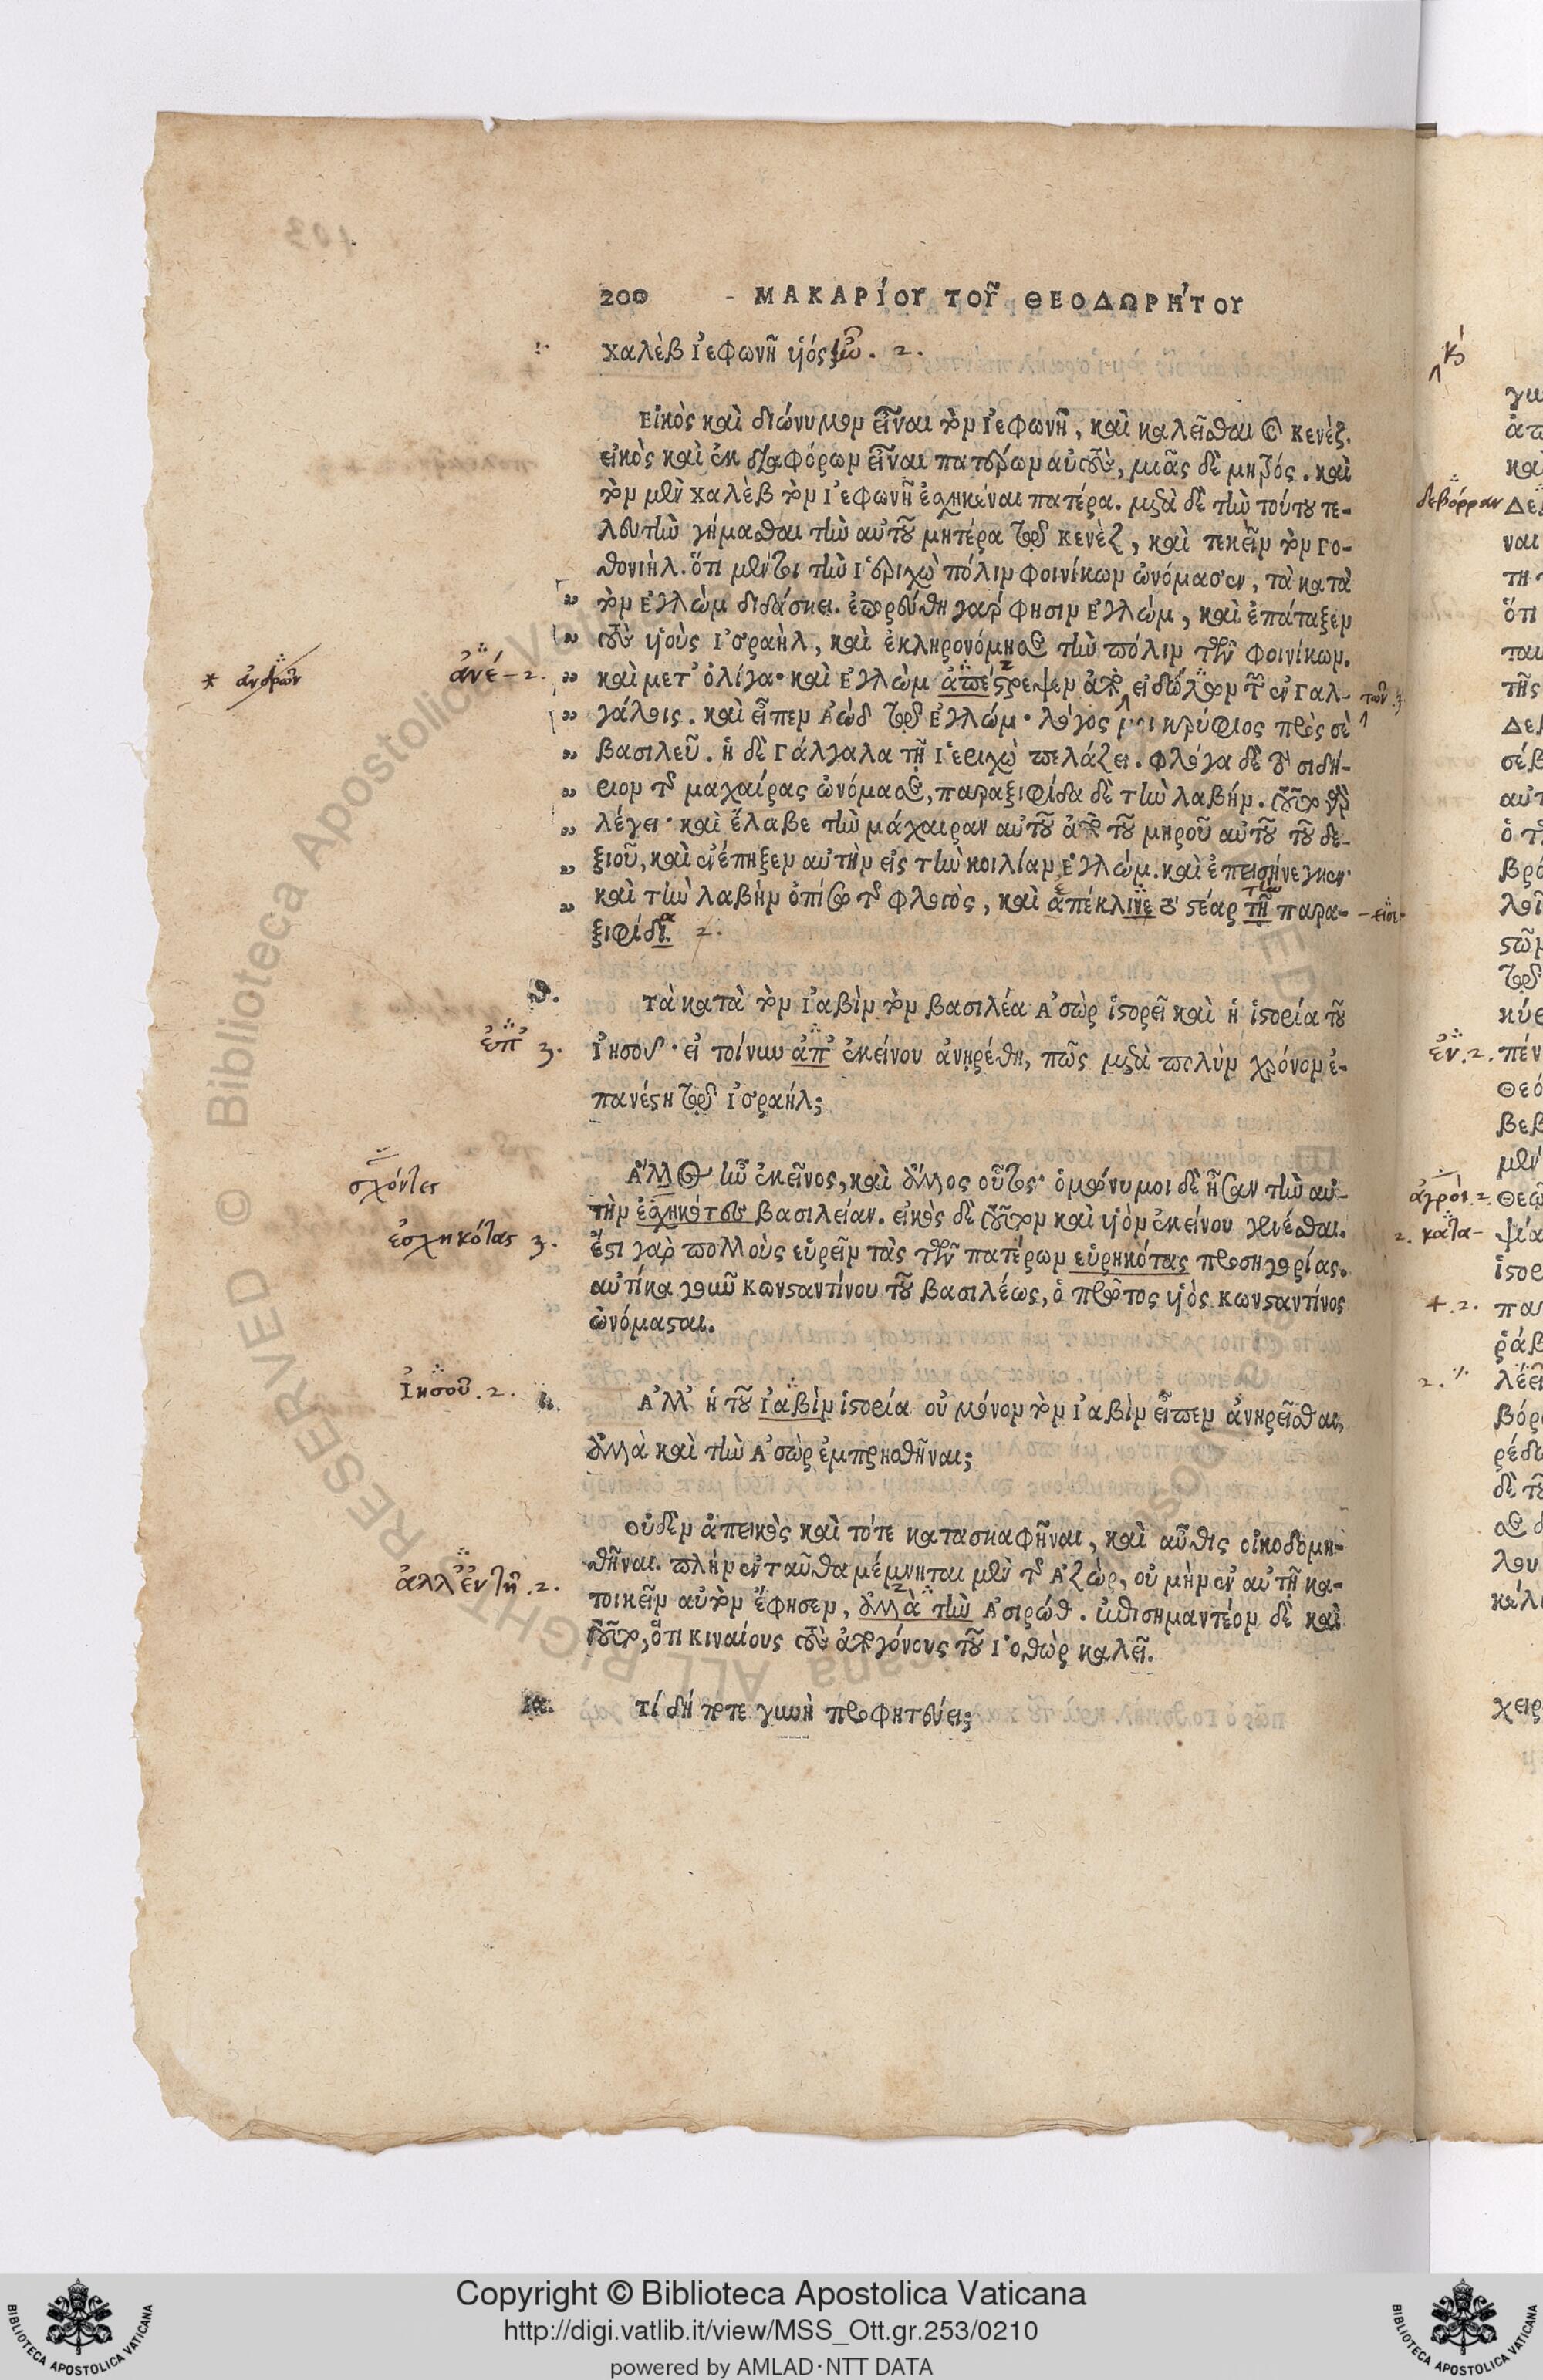 200 - ΜΑΚΑΡίΟΥ ΤΟῦ ΘΕΟΔΩΡΉΤΟΥ
χαλὲβ Ἰεφωνῆ υἱός
Εἰκὸς καὶ διώνυμον εἶναι τὸν Ἰεφωνῆ, καὶ καλεῖσθαι καὶ κενέζ.
εἰκὸς καὶ ἐκ διαφόρων εἶναι πατέρων αὐτοὺς, μιᾶς δὲ μητρός. καὶ
τὸν μὲν χαλὲβ τὸν Ἰεφωνῆ ἐσχηκέναι πατέρα. μετὰ δὲ τὴν τούτου τε-
λευτὴν γήμασθαι τὴν αὐτοῦ μητέρα τῷ κενὲζ, καὶ τεκεῖν τὸν γο-
θονιήλ. ὅτι μέντοι τὴν Ἱεριχὼ πόλιν φοινίκων ὠνόμασεν, τὰ κατὰ
„ τὸν Ἐγλὼμ διδάσκει. ἐπορεύθη γάρ φησιν Ἐγλώμ, καὶ ἐπάταξεν
„ τοὺς υἱοὺς Ἰσραὴλ, καὶ ἐκληρονόμησε τὴν πόλιν τῶν φοινίκων.
* ἀνδρῶν ἀνέ- 2. „ καὶ μετ' ὀλίγα· καὶ Ἐγλὼμ ἀπέστρεψεν ἀπὸ εἰδώλων τ͂ ἐν Γαλ- τῶν 3
„ γάλοις. καὶ εἶπεν Ἀὼδ τῷ Ἐγλώμ· λόγος μοι κρύφιος πρὸς σὲ
„ βασιλεῦ. ἡ δὲ Γάλγαλα τῇ Ἱεριχὼ πελάζει. φλόγα δὲ τὸ σιδή-
„ ριον τῆς μαχαίρας ὠνόμασε, παραξιφίδα δὲ τὴν λαβήν. οὕτω γὰρ
„ λέγει· καὶ ἔλαβε τὴν μάχαιραν αὐτοῦ ἀπὸ τοῦ μηροῦ αὐτοῦ τοῦ δε-
„ ξιοῦ, καὶ ἐνέπηξεν αὐτὴν εἰς τὴν κοιλίαν Ἐγλώμ. καὶ ἐπεισήνεγκεν
„ καὶ τὴν λαβὴν ὀπίσω τῆς φλογὸς, καὶ ἀπέκλινε τὸ στέαρ τῇ παρα-
ξιφίδι. 2.
θ. Τὰ κατὰ τὸν Ἰαβὶν τὸν βασιλέα Ἀσὼρ ἱστορεῖ καὶ ἡ ἱστορία τοῦ
ἐπ' 3. Ἰησοῦ· εἰ τοίνυν ἀπ' ἐκείνου ἀνῃρέθη, πῶς μετὰ πολὺν χρόνον ἐ-
πανέστη τῷ Ἰσραήλ;
σχόντες Ἄλλος ἦν ἐκεῖνος, καὶ ἄλλος οὗτος· ὁμώνυμοι δὲ ἦσαν τὴν αὐ-
τὴν ἐσχηκότες βασιλείαν. εἰκὸς δὲ τοῦτον καὶ υἱὸν ἐκείνου γενέσθαι.
ἐσχηκότας 3. ἔστι γὰρ πολλοὺς εὑρεῖν τὰς τῶν πατέρων εὑρηκότας προσηγορίας.
αὐτίκα γοῦν Κωνσταντίνου τοῦ βασιλέως, ὁ πρῶτος υἱὸς κωνσταντίνος
ὠνόμασται.
Ἰησοῦ. 2. ι. Ἀλλ' ἡ τοῦ Ἰαβὶν ἱστορία οὐ μόνον τὸν Ἰαβὶν εἶπεν ἀνῃρεῖσθαι,
ἀλλὰ καὶ τὴν Ἀσὼρ ἐμπρησθῆναι;
Οὐδὲν ἀπεικὸς καὶ τότε κατασκαφῆναι, καὶ αὖθις οἰκοδομη-
θῆναι. πλὴν ἐνταῦθα μέμνηται μὲν τῆς Ἀζὼρ, οὐ μὴν ἐν αὐτῇ κα-
ἀλλ' ἐν τῇ. 2. τοικεῖν αὐτὸν ἔφησεν, ἀλλὰ τὴν Ἀσιρώθ. ἐπισημαντέον δὲ καὶ
τοῦτο, ὅτι κιναίους τοὺς ἀπογόνους τοῦ Ἰοθὼρ καλεῖ.
ια. Τί δή ποτε γυνὴ προφητεύει;
δεβόρραν
ἐν. 2. πέν
ἀγρόι. 2.
2. κατα-
Copyright © Biblioteca Apostolica Vaticana
http://digi.vatlib.it/view/MSS_Ott.gr.253/0210
powered by AMLAD·NTT DATA
BIBLIOTECA APOSTOLICA VATICANA
BIBLIOTECA APOSTOLICA VATICANA